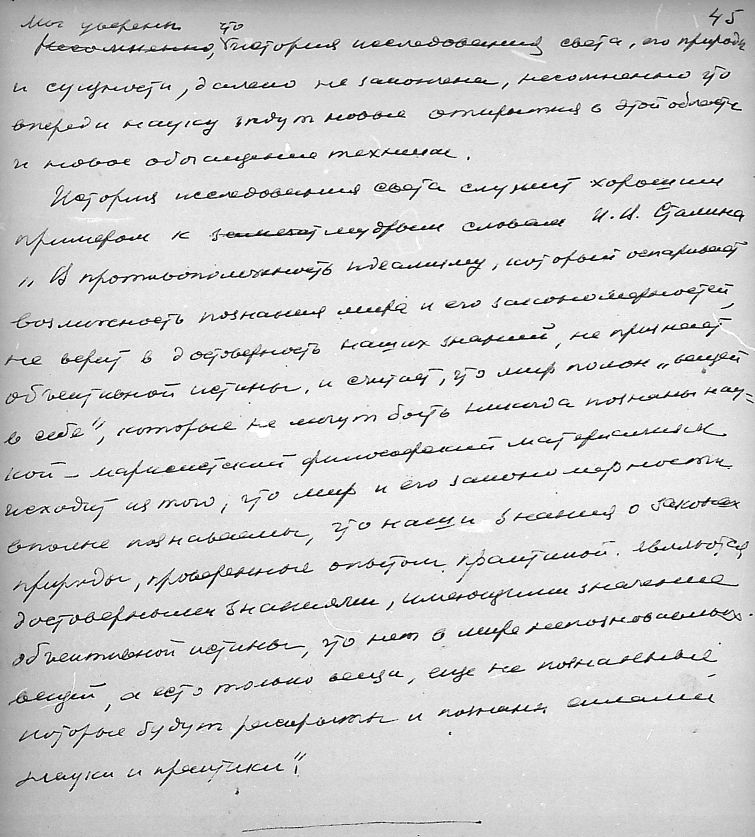 45
Мы уверены что
Несомненно, история исследования света, его природы
и сущности, далеко не закончена, несомненно что
впереди науку ждут новые открытия в этой области
и новое обогащение техники.
История исследования света служит хорошим
примером к мудрым словам И.В. Сталина
„В противоположность идеализму, который оспаривает
возможность познания мира и его закономерностей,
не верит в достоверность наших знаний, не признает
объективной истины, и считает, что мир полон „вещей
в себе", которые не могут быть никогда познаны нау-
кой – марксистский философский материализм
исходит из того, что мир и его закономерности
вполне познаваемы, что наши знания о законах
природы, проверенные опытом, практикой. являются
достоверными знаниями, имеющими значение
объективной истины, что нет в мире непознаваемых
вещей, а есть только вещи, еще не познанные
которые будут раскрыты и познаны силами
науки и практики".